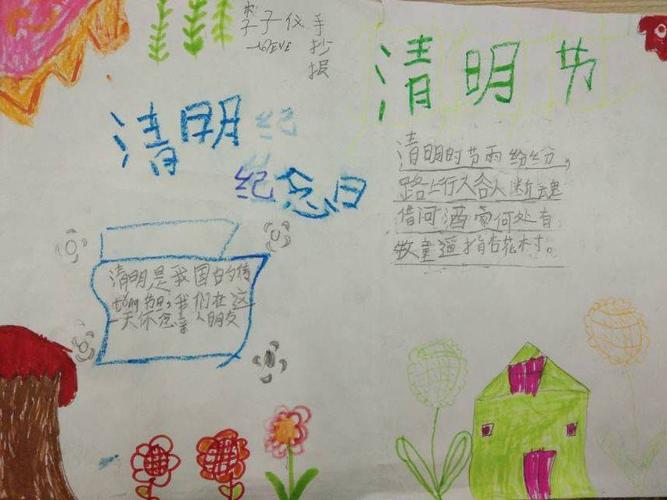 李子仪
手抄报
LOEVE
清明节
清明纪
纪念日
清明时节雨纷纷,
路上行人各人断魂
借问酒家何处有
牧童遥指杏花村。
清明是我国的传
统节日,我们在这
一天怀念亲人朋友